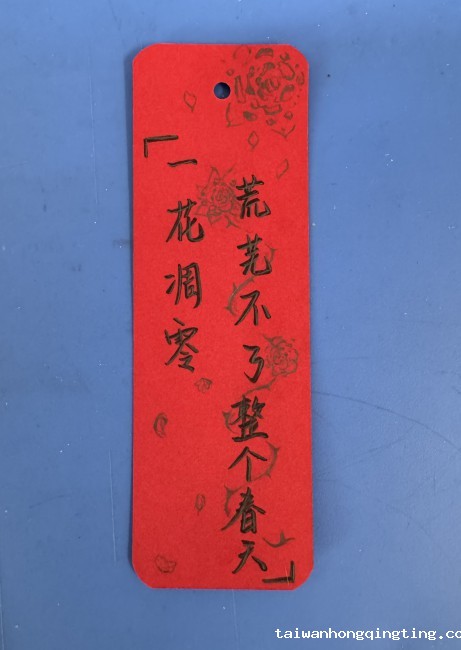 「一花凋零
荒芜不了整个春天」
taiwanhongqingting.com